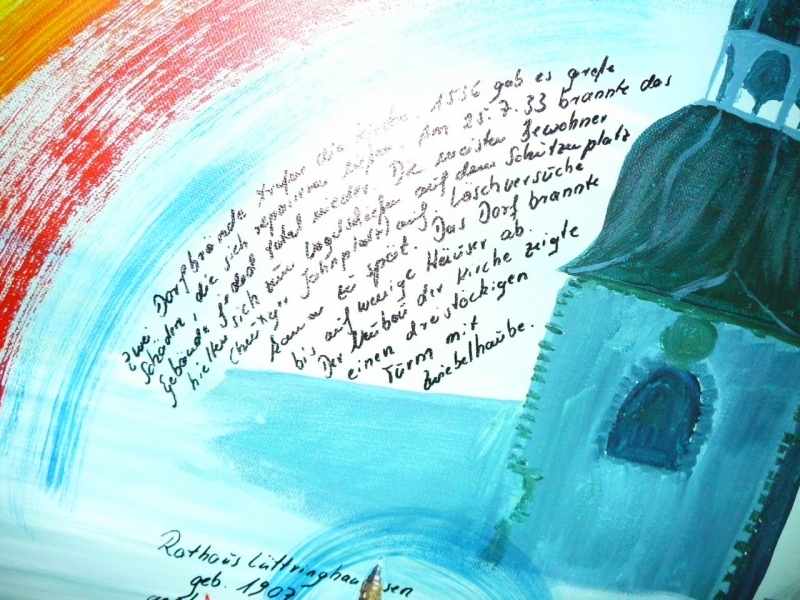 Zwei Dorfbrände trafen die Kirche. 1536 gab es große
Schäden, die sich reparieren ließen. Am 25.7.33 brannte das
Gebäude total nieder. Die meisten Bewohner
hielten sich zum Vogelschießen auf dem Schützenplatz
(heutiger Jahnplatz) auf. Löschversuche
kamen zu spät. Das Dorf brannte
bis auf wenige Häuser ab.
Der Neubau der Kirche zeigte
einen dreistöckigen
Turm mit
Zwiebelhaube.
Rathaus Lüttringhausen
geb. 1907